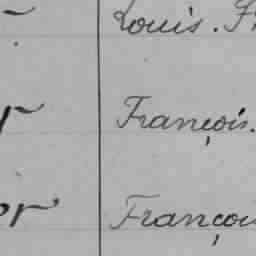 Louis. F
r François.
or François